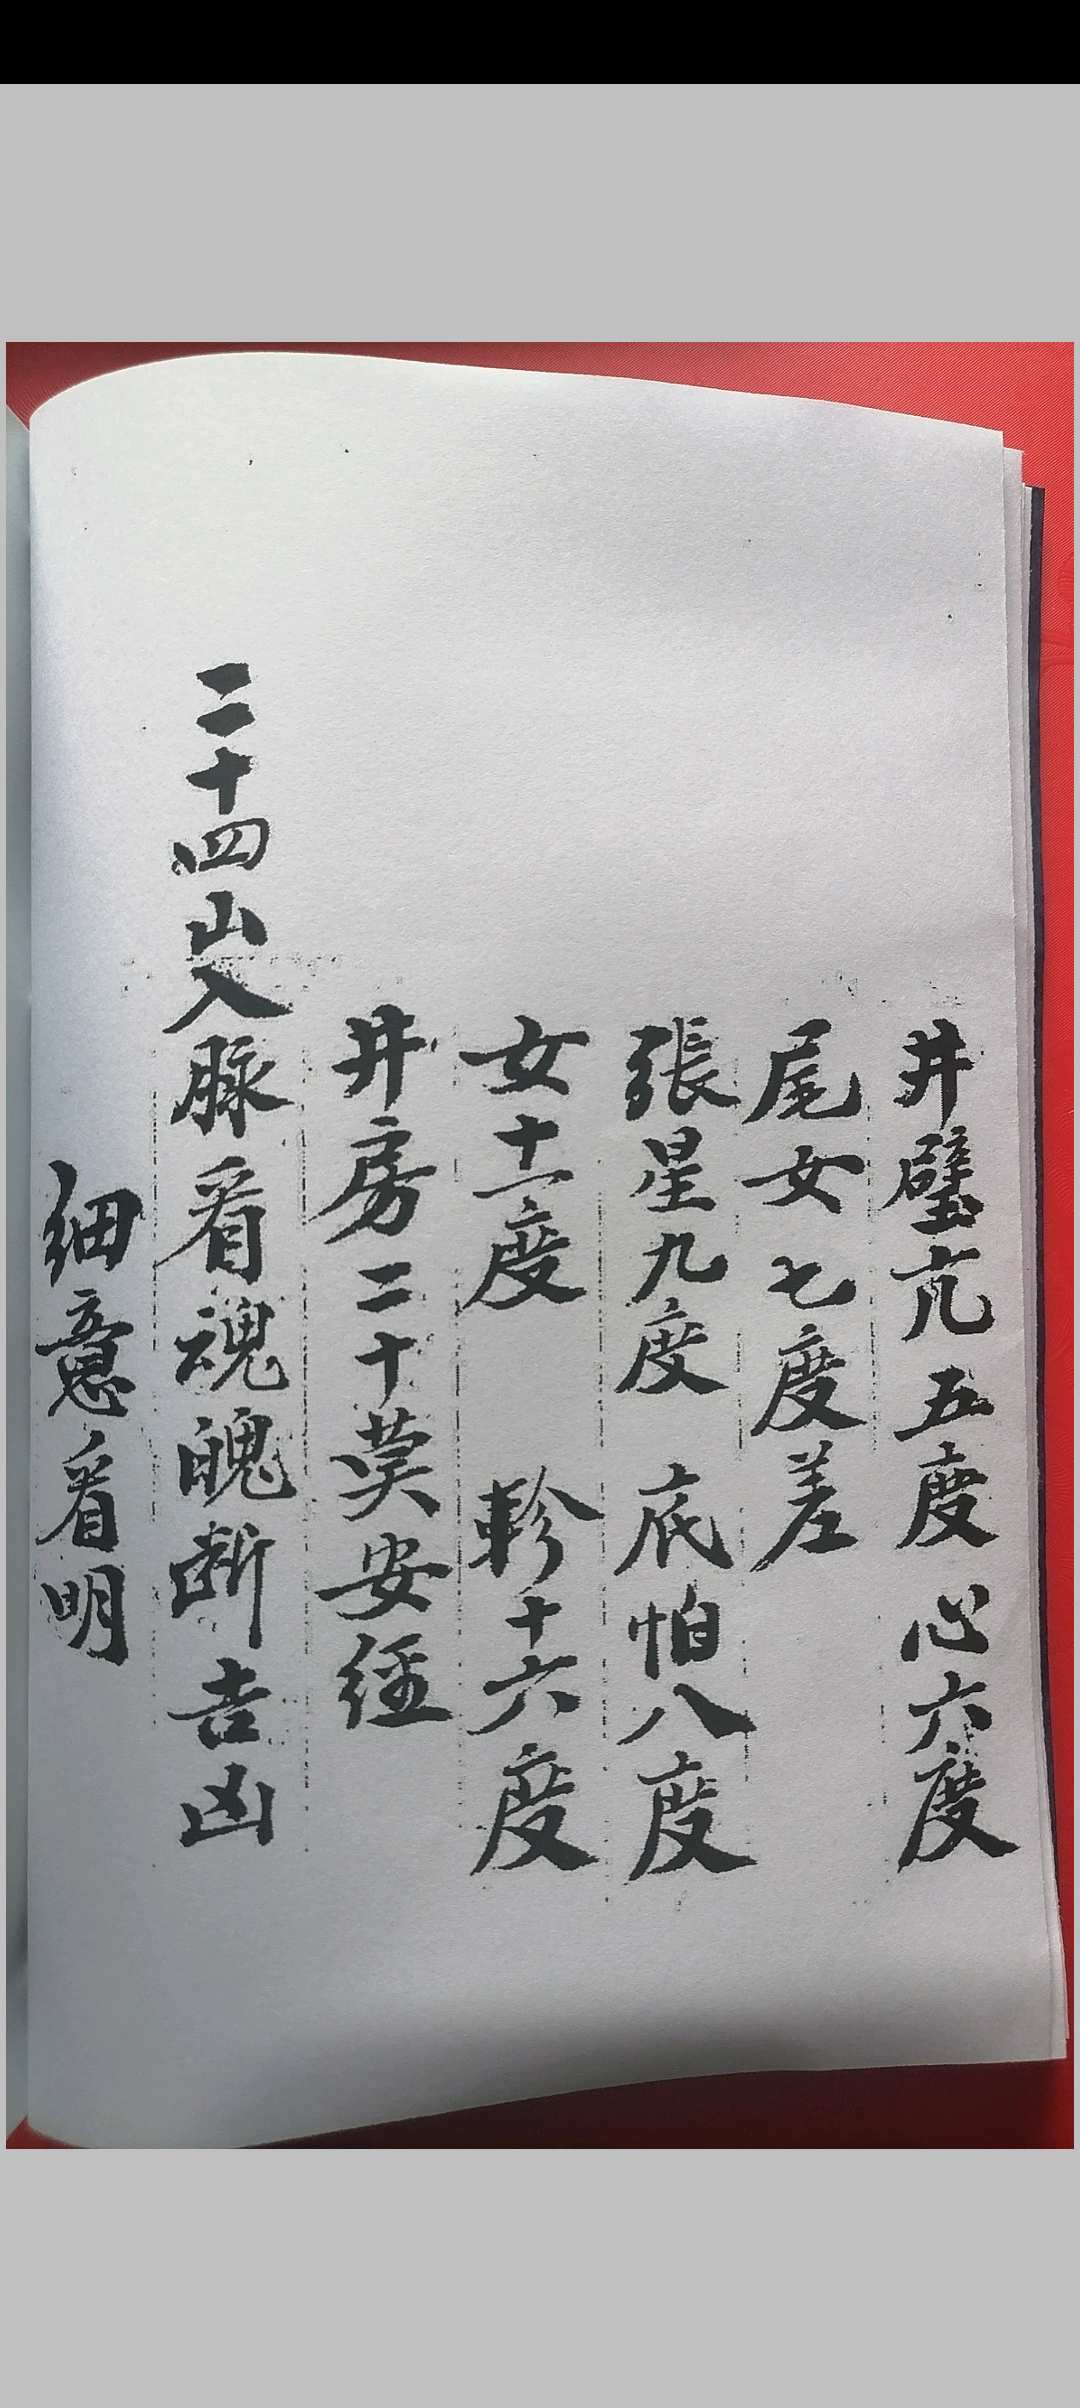 井璧亢五度 心六度
尾女七度差
張星九度 底怕八度
女十一度 軫十六度
井房二十莫安經
二十四山入脉看魂魄断吉凶
細意看明